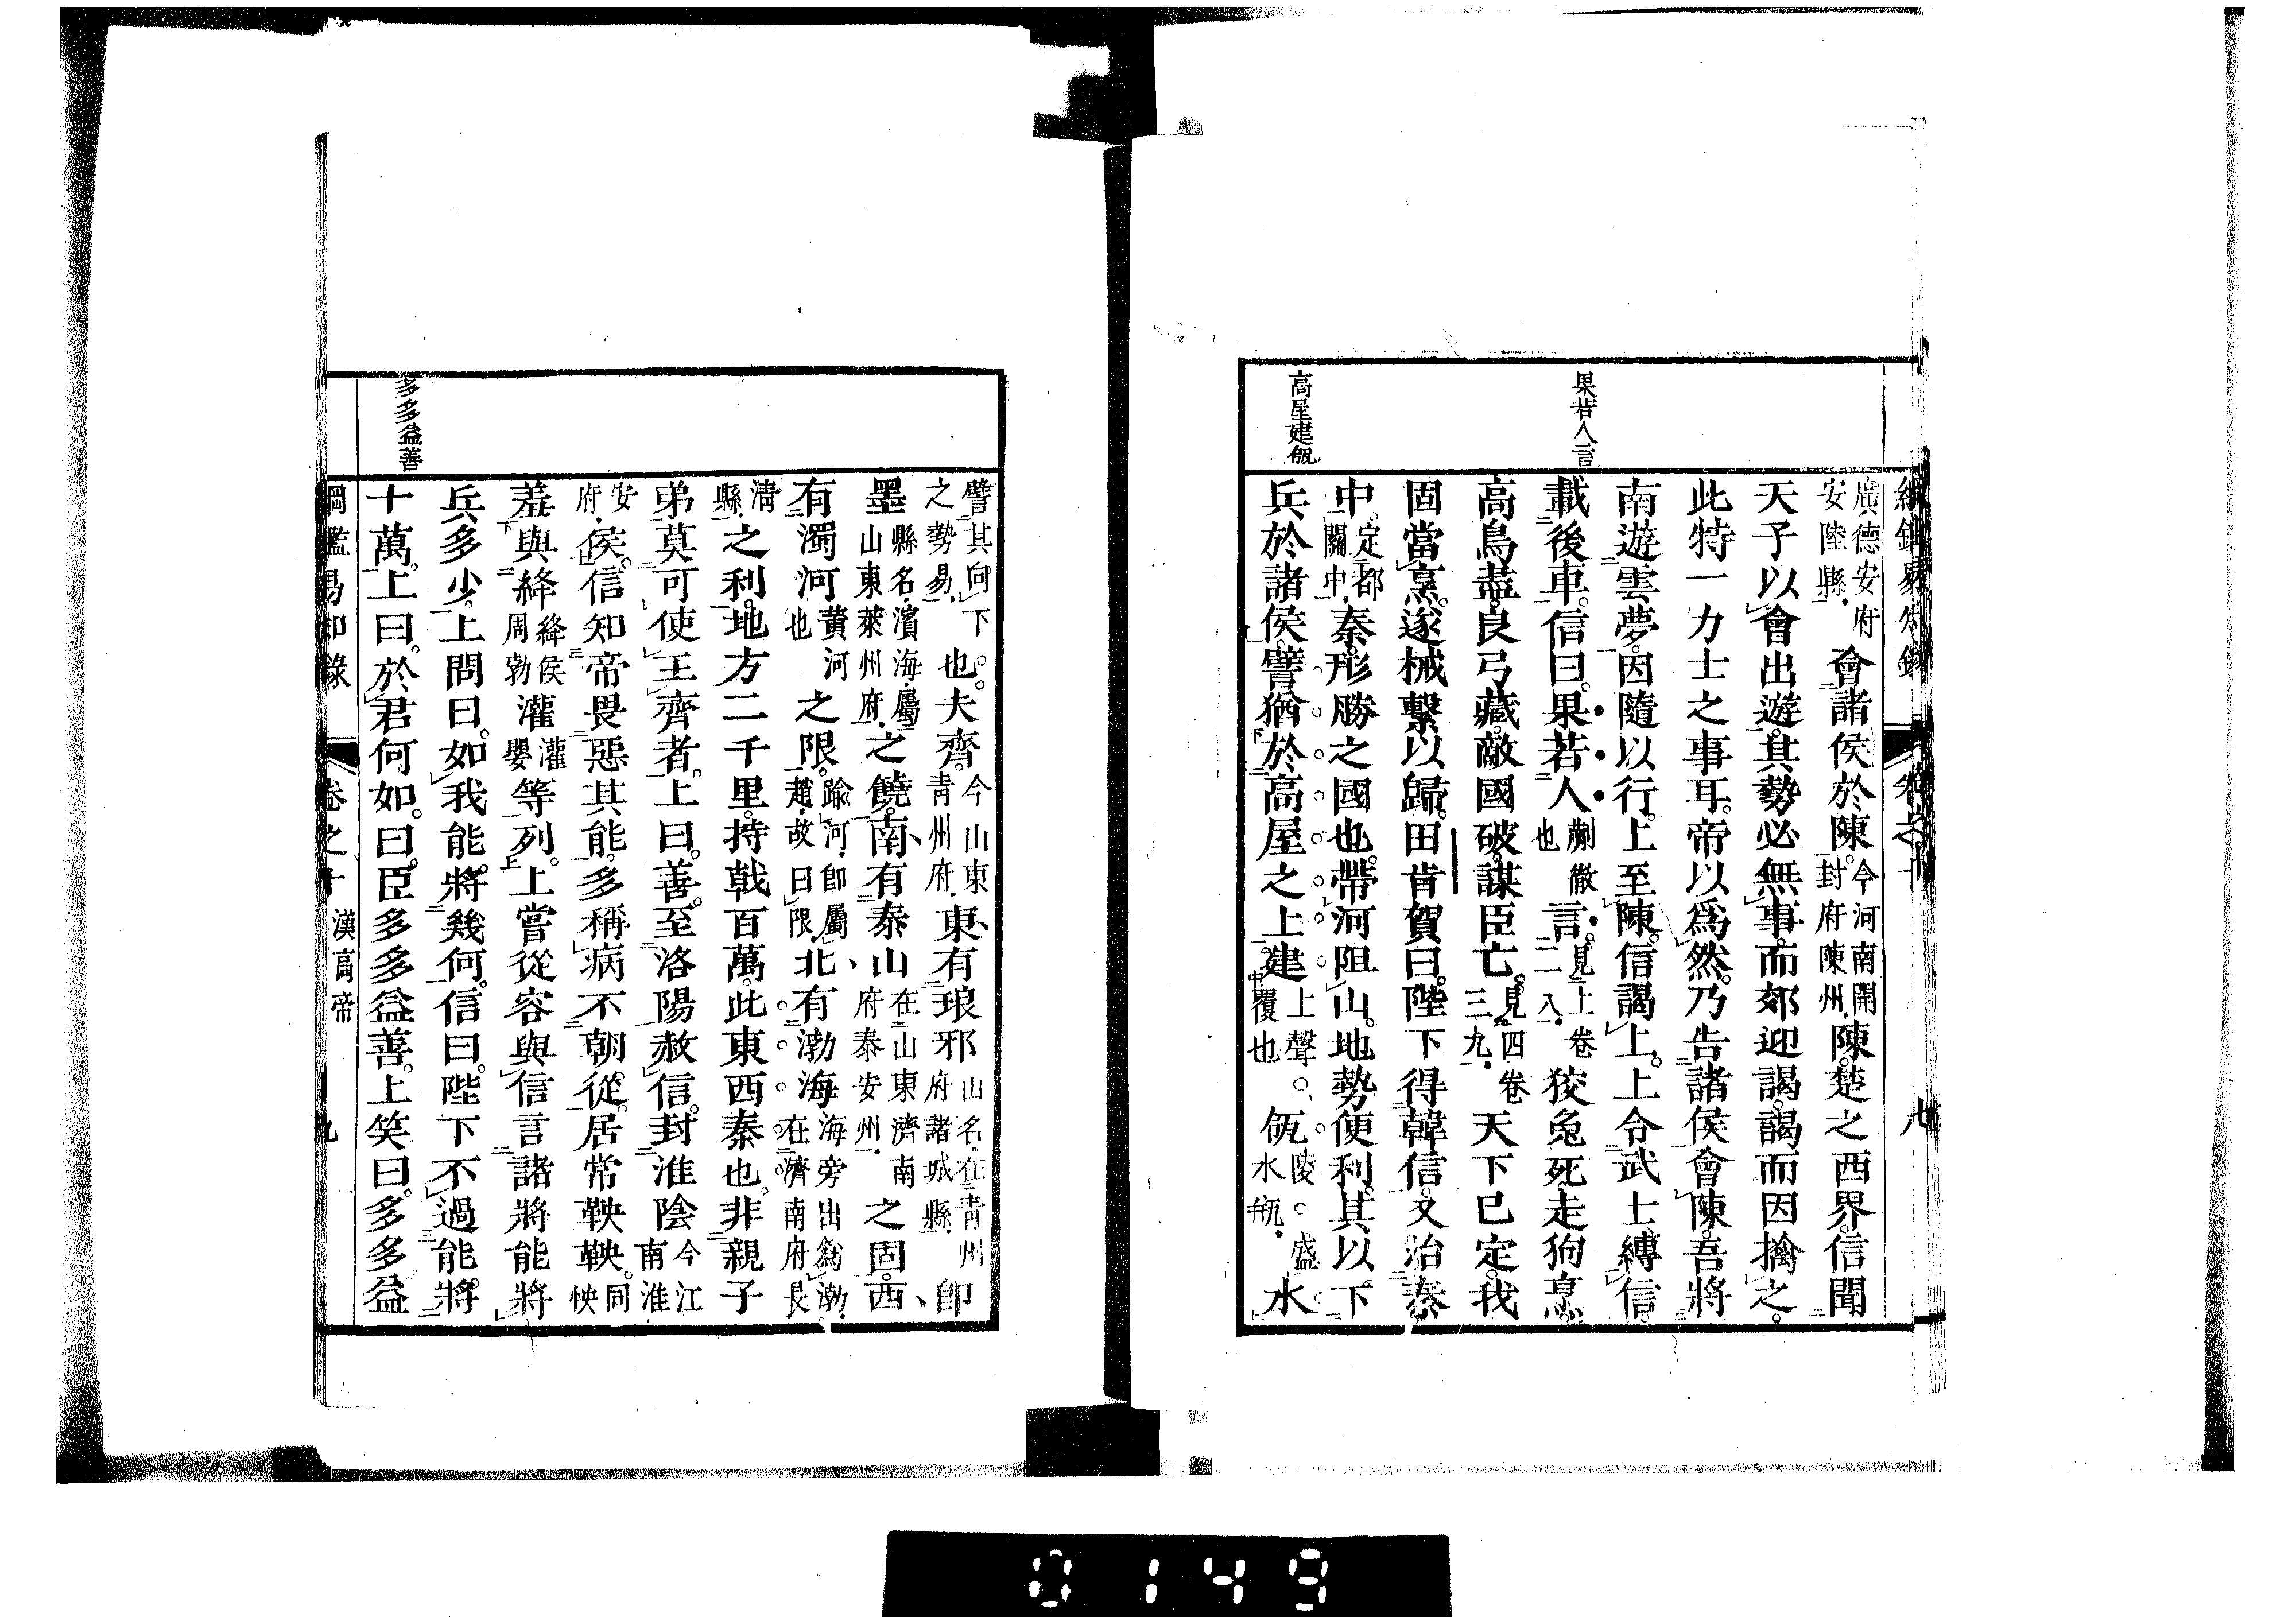 果若人言
高屋建瓴
廣德安府安陸縣會諸侯於陳今河南開封府陳州陳楚之西界信聞
天子以會出遊其勢必無事而郊迎謁謁而因擒之
此特一力士之事耳帝以爲然乃告諸侯會陳吾將
南遊雲夢因隨以行上至陳信謁上上令武士縛信
載後車信曰果若人蒯徹也言見上卷二一八狡兔死走狗烹
高鳥盡良弓藏敵國破謀臣亡見四卷三九天下已定我
固當烹遂械繫以歸田肯賀曰陛下得韓信又治秦
中定都關中秦形勝之國也帶河阻山地勢便利其以下
兵於諸侯譬猶於高屋之上建上聲覆也瓴陵盛水瓶水
多多益善
譬其向下之勢易也夫齊今山東青州府東有琅邪山名在青州府諸城縣即
墨縣名濱海屬山東萊州府之饒南有泰山在山東濟南府泰安州之固西
有濁河黃河也之限踰河即屬趙故曰限北有渤海海旁出爲渤在濟南府長
清縣之利地方二千里持戟百萬此東西秦也非親子
弟莫可使王齊者上曰善至洛陽赦信封淮陰今江南淮
安府侯信知帝畏惡其能多稱病不朝從居常鞅鞅同怏
羞與絳絳侯周勃灌灌嬰等列上嘗從容與信言諸將能將
兵多少上問曰如我能將幾何信曰陛下不過能將
十萬上曰於君何如曰臣多多益善上笑曰多多益
綱鑑易知錄　卷之十　漢高帝　九